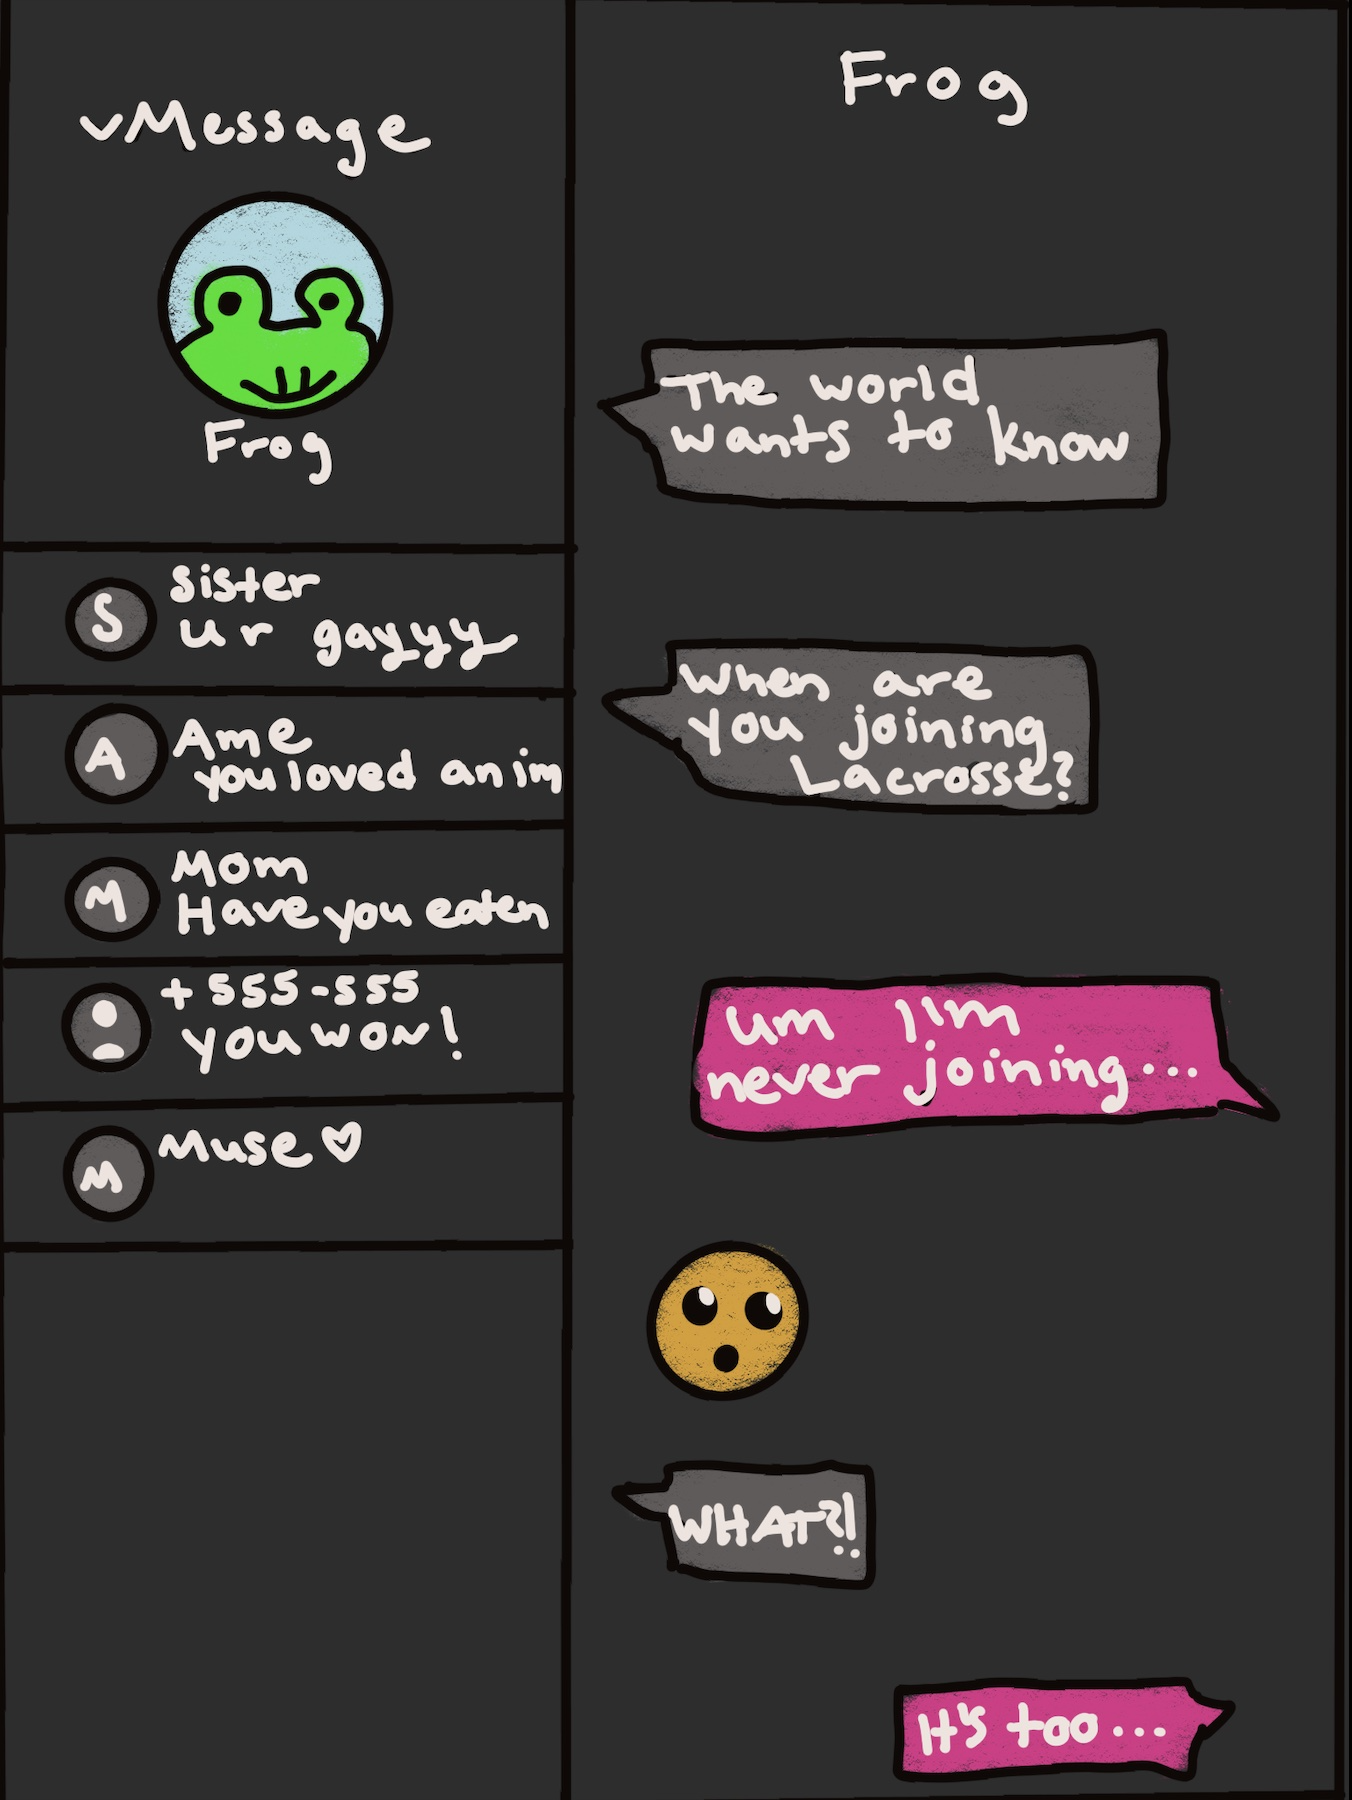 vMessage
Frog
S
Sister
ur gayyy
A
Ame
you loved anim
M
Mom
Have you eaten
+555-555
you won!
M
Muse♡
Frog
The world
wants to know
When are
you joining
Lacrosse?
um I'm
never joining...
WHAT?!
It's too...